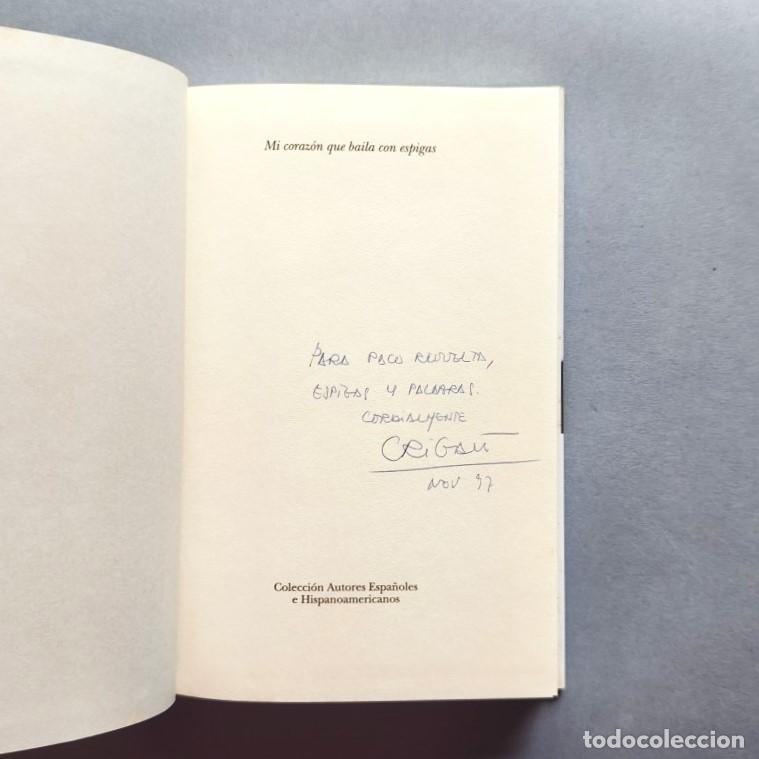 Mi corazón que baila con espigas
PARA PACO REVUELTA,
ESPIGAS Y PALABRAS.
CORDIALMENTE
NOV 97
Colección Autores Españoles
e Hispanoamericanos
todocoleccion